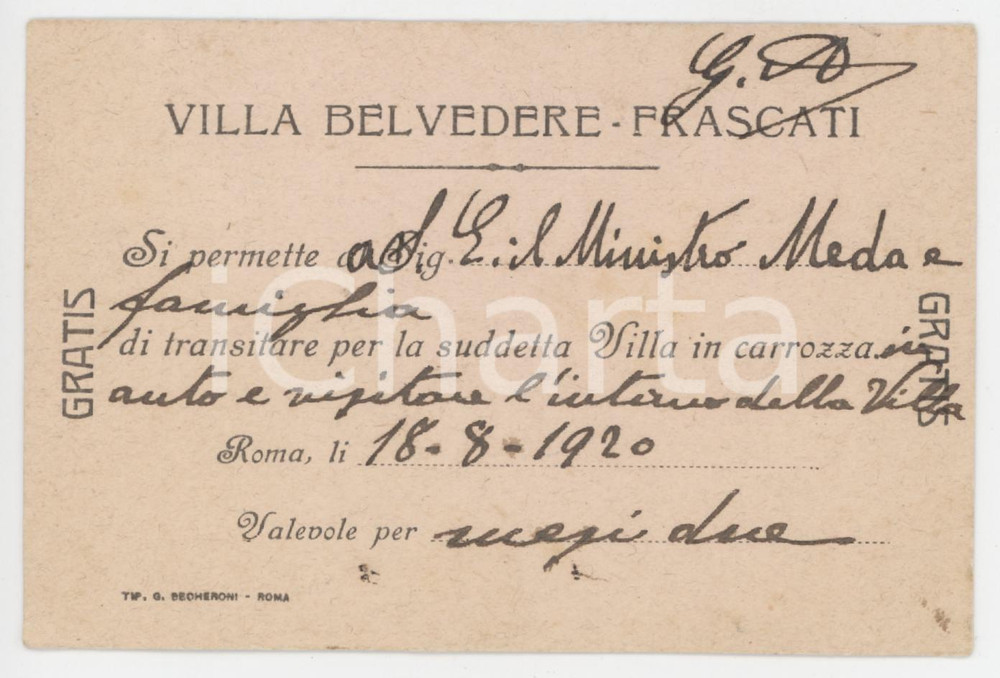 G. A
VILLA BELVEDERE - FRASCATI
Si permette a S. E. il Ministro Meda e
famiglia
di transitare per la suddetta Villa in carrozza in
auto e visitare l'interno della Villa
Roma, li 18-8-1920
Valevole per mesi due
TIP. G. BECHERONI - ROMA
GRATIS
GRATIS
iCharta